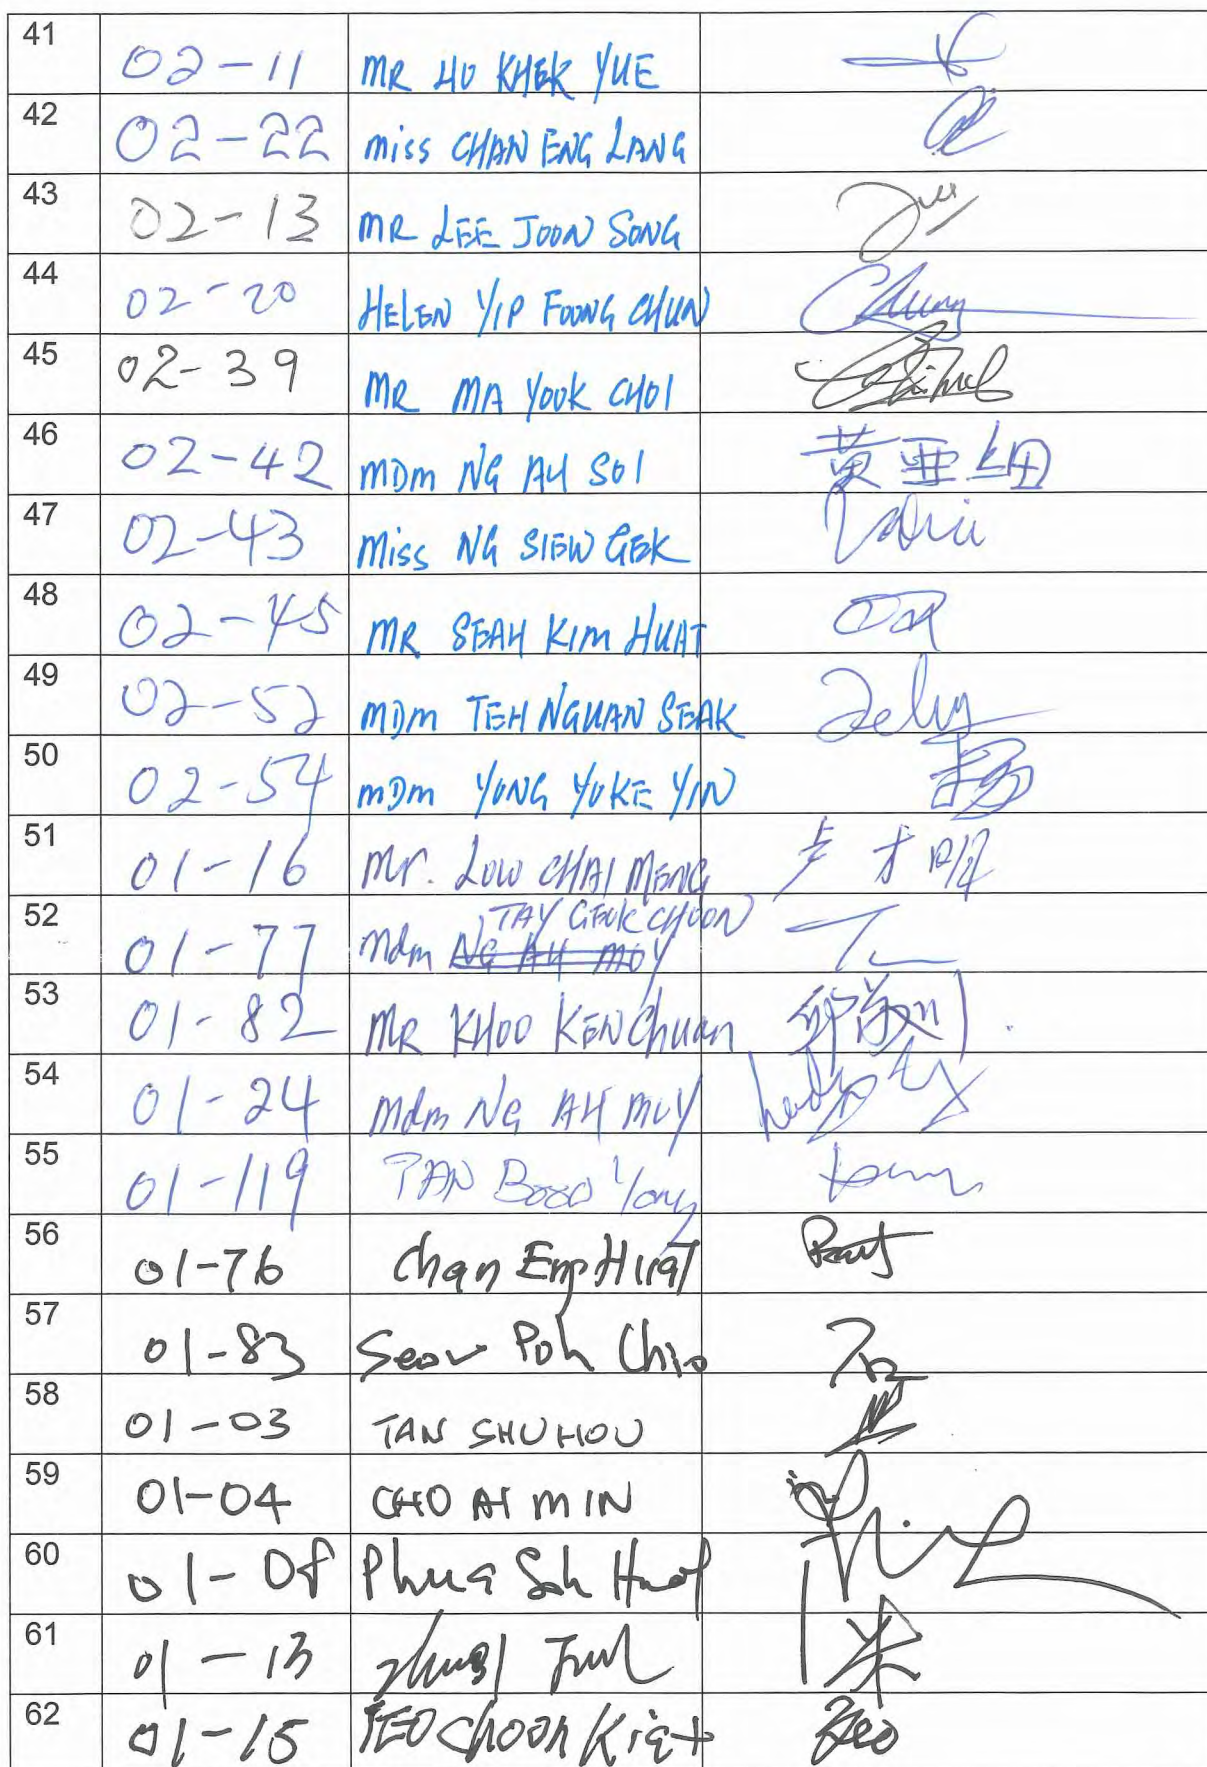 41 02-11 MR HO KHEK YUE
42 02-22 miss CHAN ENG LANG
43 02-13 MR LEE JOON SONG
44 02-20 HELEN YIP FOONG CHUN Chung
45 02-39 MR MA YOOK CHOI
46 02-42 MDM NG AH SOI 黄亜細
47 02-43 Miss NG SIEW GEK
48 02-45 MR SEAH KIM HUAT
49 02-52 MDM TEH NGUAN SEAK
50 02-54 MDM YONG YOKE YIN 杨
51 01-16 Mr. LOW CHAI MENG
TAY GEOK CHOON
52 01-77 Mdm NG AH MOY
53 01-82 MR KHOO KEN Chuan
54 01-24 Mdm NG AH MOY
55 01-119 TAN Boon Yong
56 01-76 Chan Eng HuaT
57 01-83 Seow Poh Chio
58 01-03 TAN SHUHOU
59 01-04 CHO AI MIN
60 01-08 Phua Soh Huat
61 01-13 朱
62 01-15 TEO choon Kiat Teo